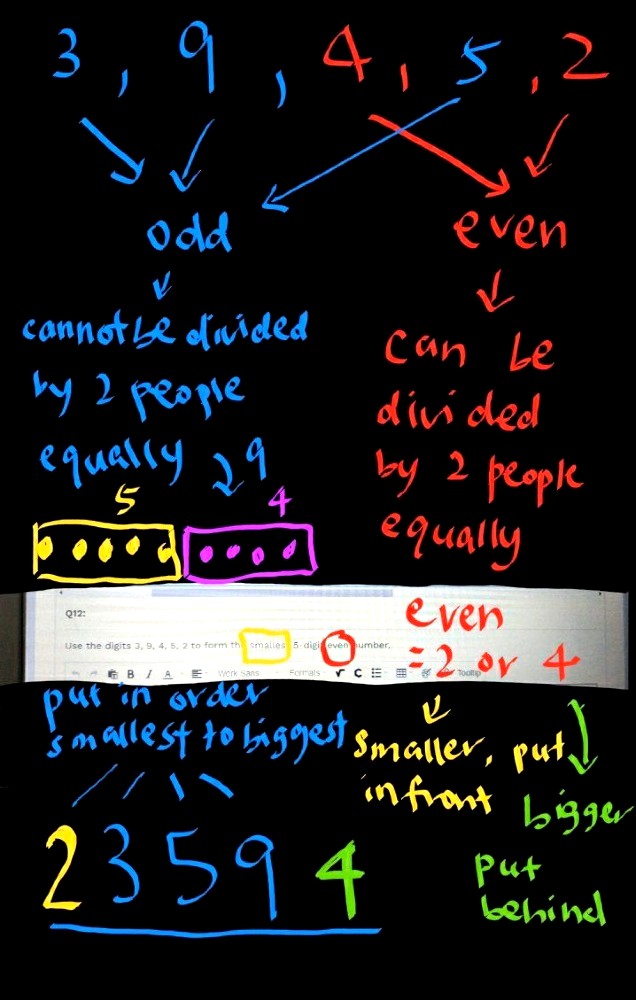 3, 9, 4, 5, 2
odd
even
cannot be divided
by 2 people
equally 9
can be
divided
by 2 people
equally
5 4
Q12:
Use the digits 3, 9, 4, 5, 2 to form the smalles 5-digi even number.
B I A Work Sans Formats √ C Tooltip
even
= 2 or 4
put in order
smallest to biggest
smaller, put
in front
bigger
put
behind
23594